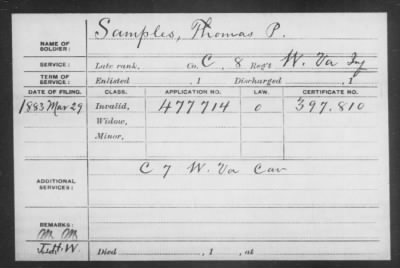 NAME OF SOLDIER: Samples, Thomas P.
SERVICE: Late rank, Co. C, 8 Reg't W. Va Inf
TERM OF SERVICE: Enlisted , 1 Discharged , 1
DATE OF FILING. CLASS. APPLICATION NO. LAW. CERTIFICATE NO.
1883 Mar 29 Invalid, 477714 o 397.810
Widow,
Minor,
ADDITIONAL SERVICES: C 7 W. Va Cav
REMARKS:
M M
Died , 1 , at